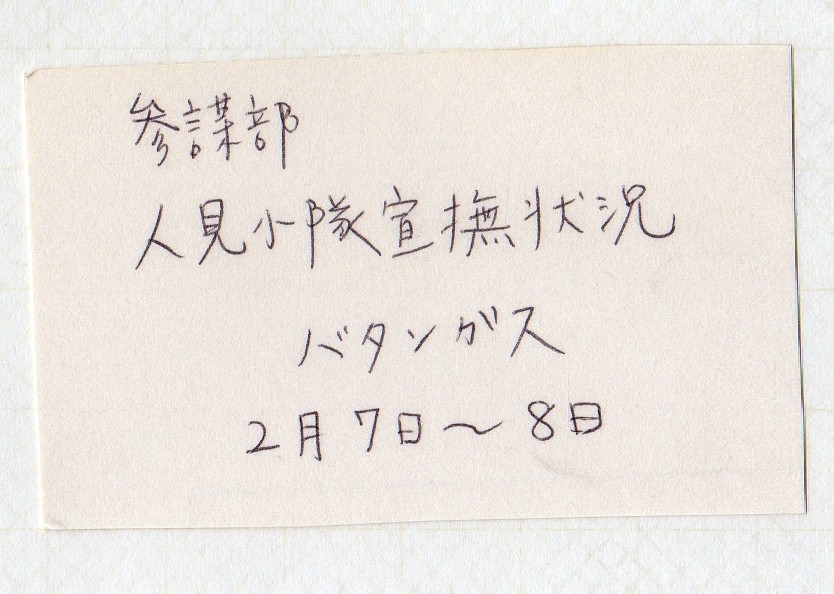 参謀部
人見小隊宣撫状況
バタンガス
2月7日〜8日